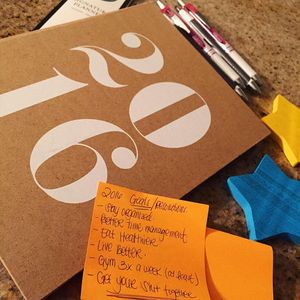 SIGNATURE
PLANNER
20
16
2016 Goals/
- Stay organized
- Better time management
- Eat Healthier
- Live Better.
- Gym 3x a week (at least)
- Get your shit together